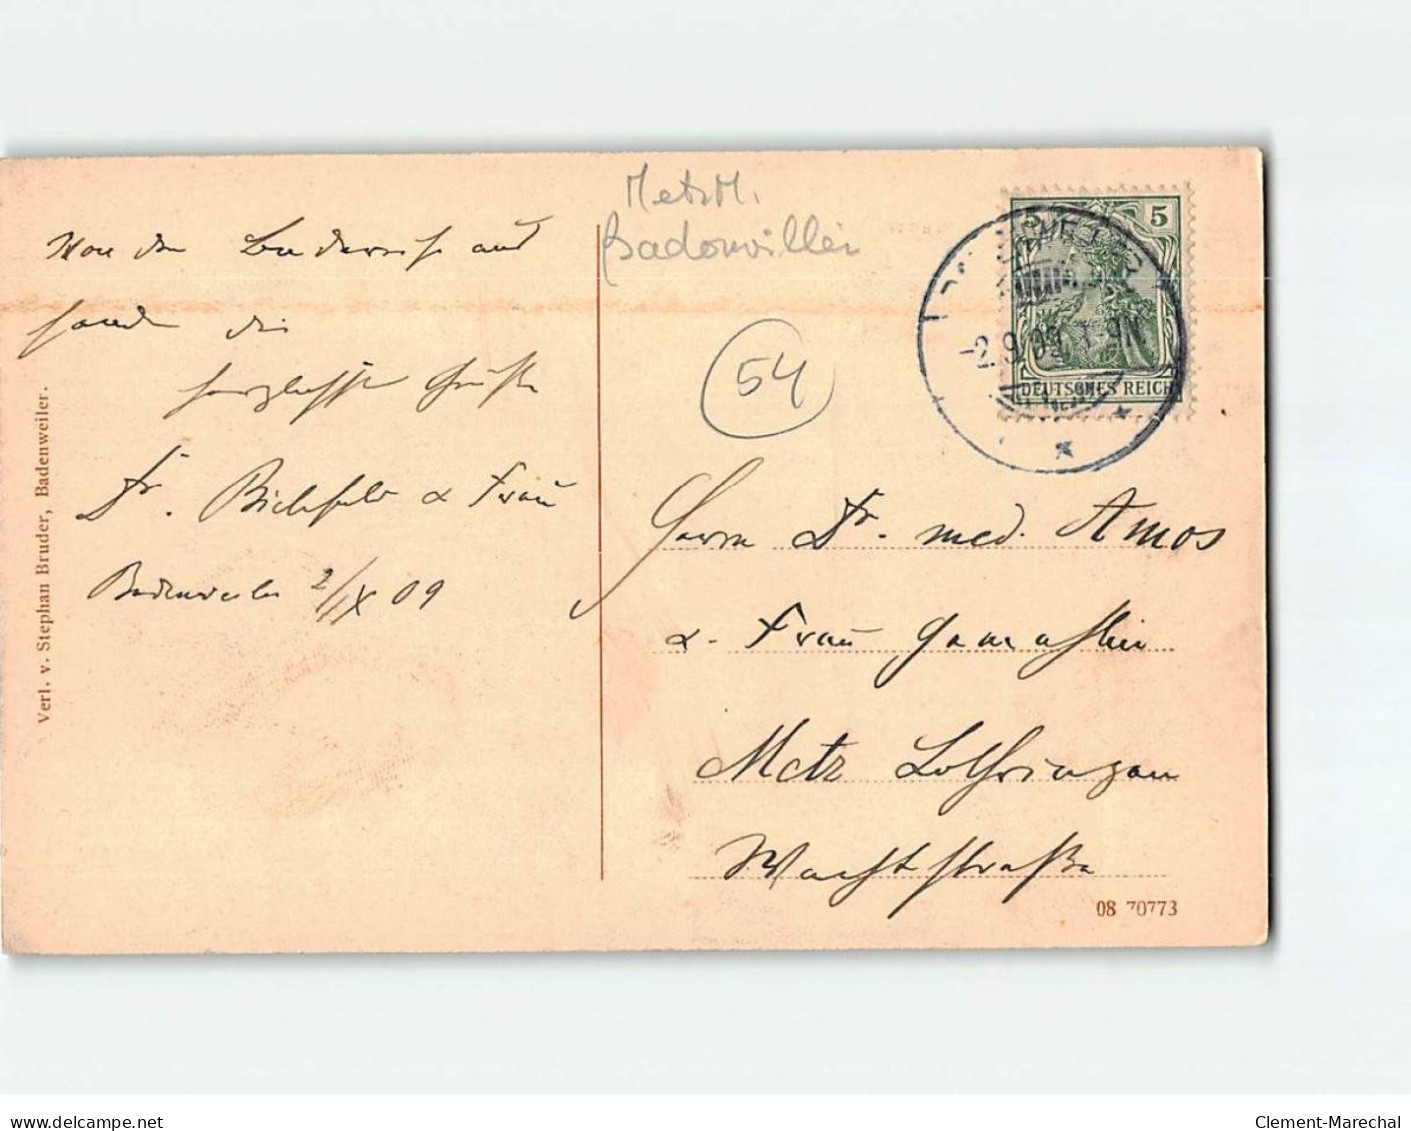 Metz M.
Badonviller
5
BADENWEILER
-2.9.09. 7-9N
DEUTSCHES REICH
Von der Badereise aus
senden die
herzlichsten Grüße
Dr. Bielefeld & Frau
Badenweiler 2/IX 09
54
Herrn Dr. med. Amos
& Frau Gemahlin
Metz Lothringen
Wachtstraße
08 70773
Verl. v. Stephan Bruder, Badenweiler.
delcampe.net
Clement-Marechal